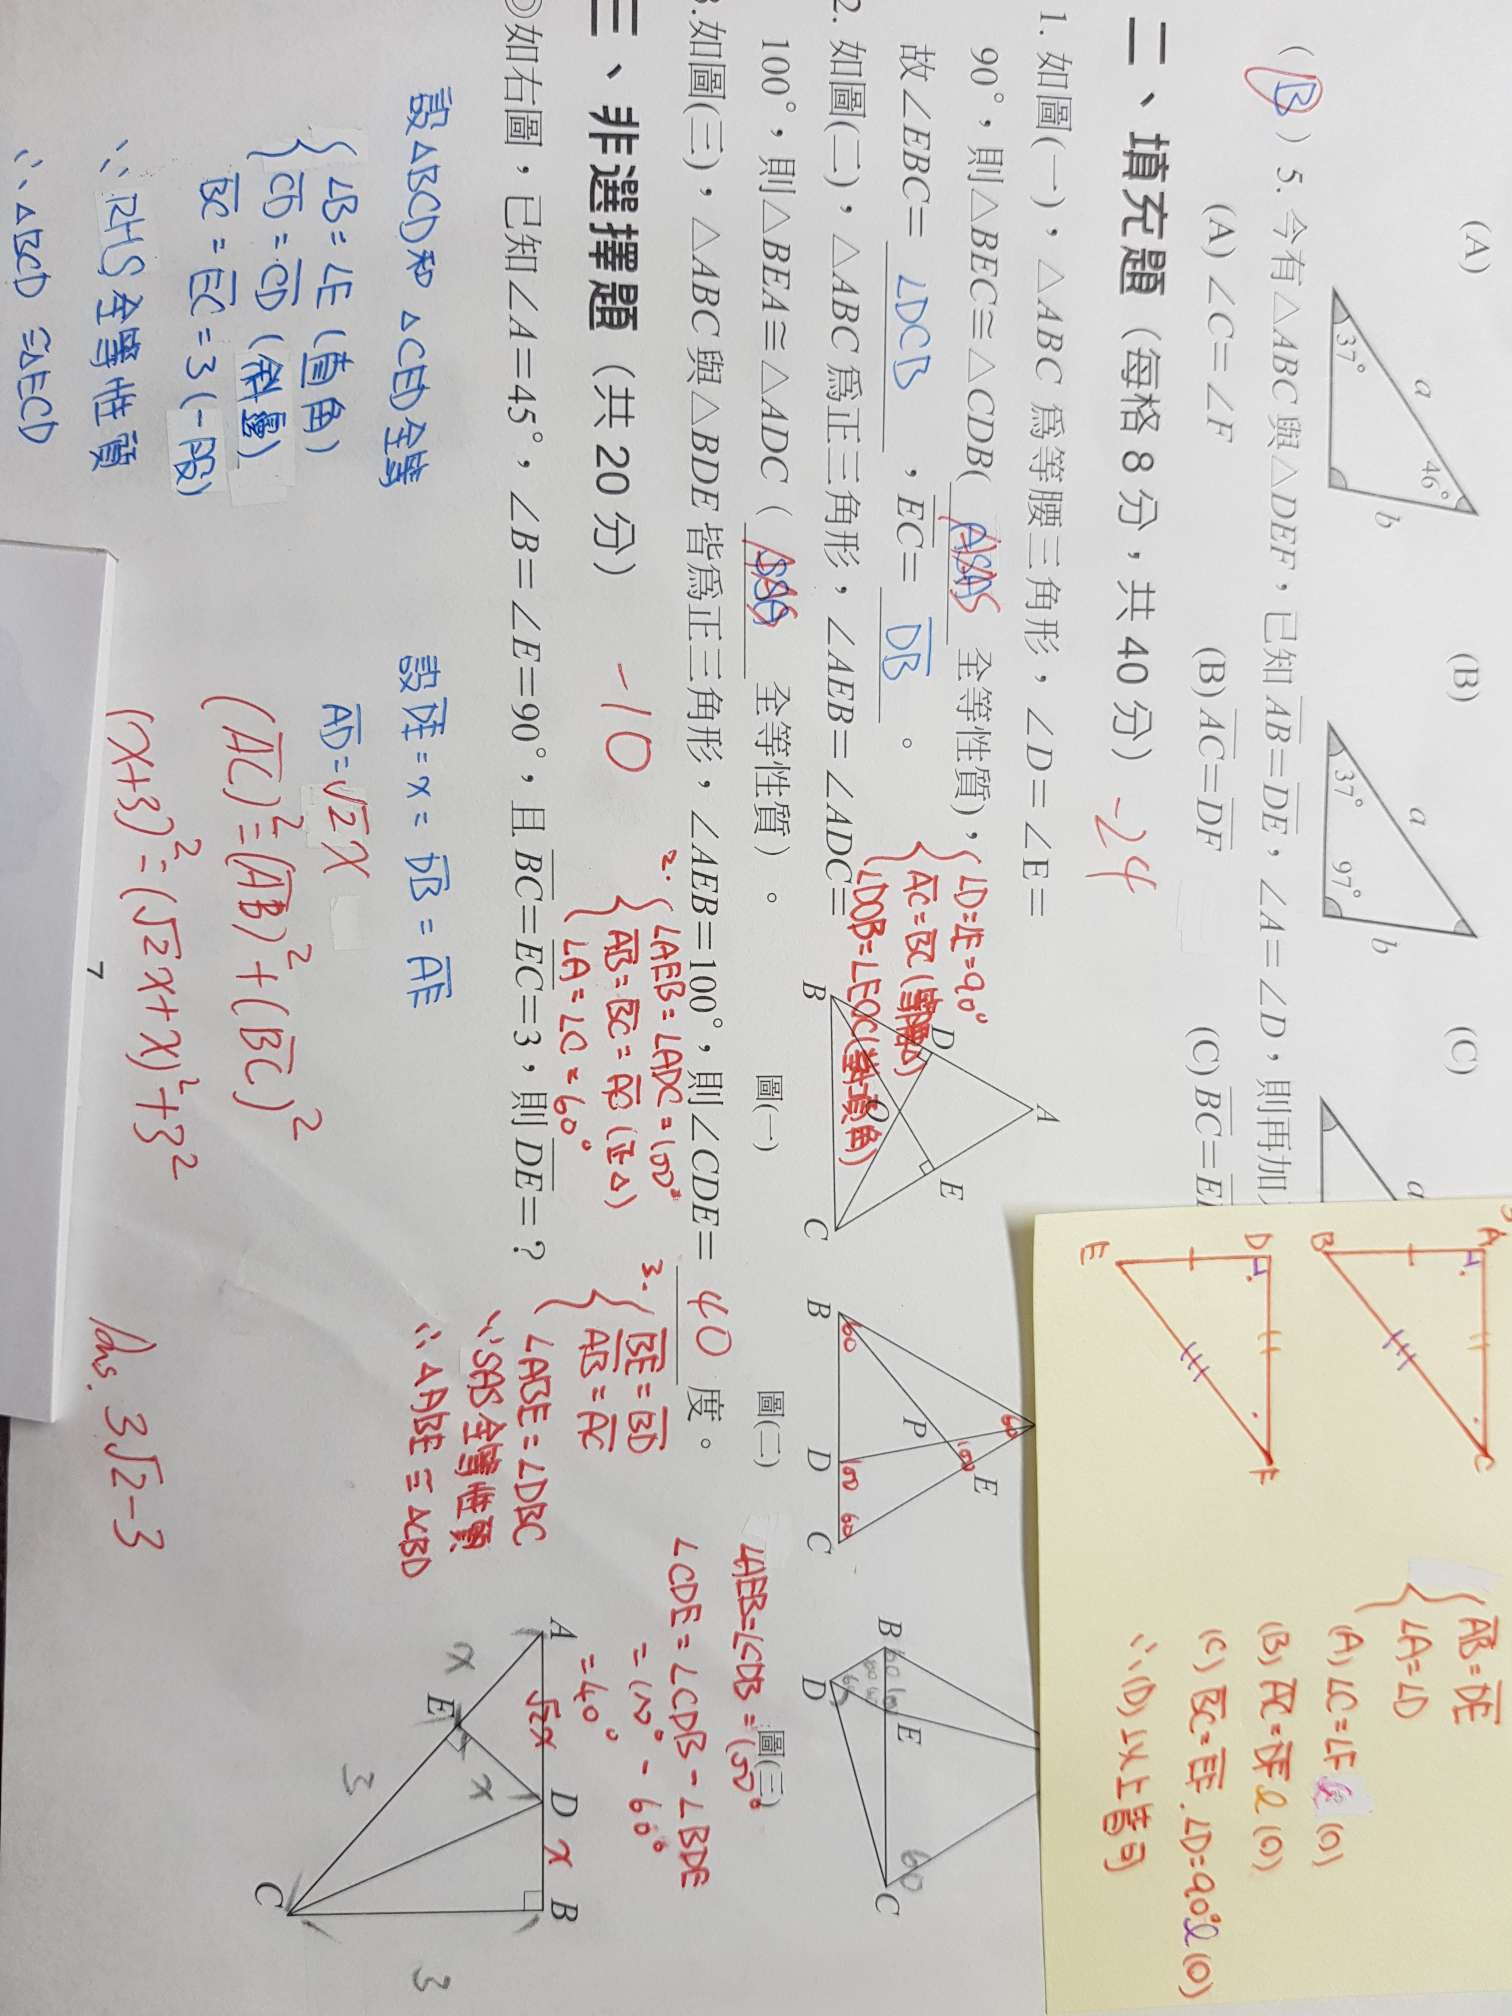 (A)
(B)
(C)
37°
46°
a
b
37°
97°
a
b
a
(B) 5. 今有△ABC與△DEF,已知AB=DE,∠A=∠D,則再加入
(A) ∠C=∠F
(B) AC=DF
(C) BC=E
二、填充題(每格 8 分,共 40 分) -24
1. 如圖(一),△ABC 為等腰三角形,∠D=∠E=
90°,則△BEC≅△CDB( 全等性質),
故∠EBC= ∠DCB ,EC= DB 。
∠D=∠E=90°
AC=BC(等腰△)
∠DOB=∠EOC(對頂角)
2. 如圖(二),△ABC為正三角形,∠AEB=∠ADC=
100°,則△BEA≅△ADC( 全等性質)。
2.
∠AEB=∠ADC=100°
AB=BC=AC(正△)
∠A=∠C=60°
A
B
C
D
E
O
圖(一)
B
D
C
P
E
60
100
100
60
60
圖(二)
B
D
E
C
60
圖(三)
3.如圖(三),△ABC與△BDE皆為正三角形,∠AEB=100°,則∠CDE= 40 度。
3.
BE=BD
AB=AC
∠ABE=∠DBC
∵SAS全等性質
∴△ABE≅△CBD
∠AEB=∠CDB=100°
∠CDE=∠CDB-∠BDE
=100°-60°
=40°
三、非選擇題(共 20 分) -10
如右圖,已知∠A=45°,∠B=∠E=90°,且BC=EC=3,則DE=?
設△BCD和△CED全等
∠B=∠E(直角)
CD=CD(斜邊)
BC=EC=3(一股)
∵RHS全等性質
∴△BCD≅△ECD
設DE=x=DB=AE
AD=√2x
(AC)²=(AB)²+(BC)²
(x+3)²=(√2x+x)²+3²
Ans. 3√2-3
A
√2x
D
x
B
x
E
x
3
C
3
7
A
B
C
D
E
F
AB=DE
∠A=∠D
(A)∠C=∠F (O)
(B)AC=DF (O)
(C)BC=EF,∠D=90° (O)
∴(D)以上皆可